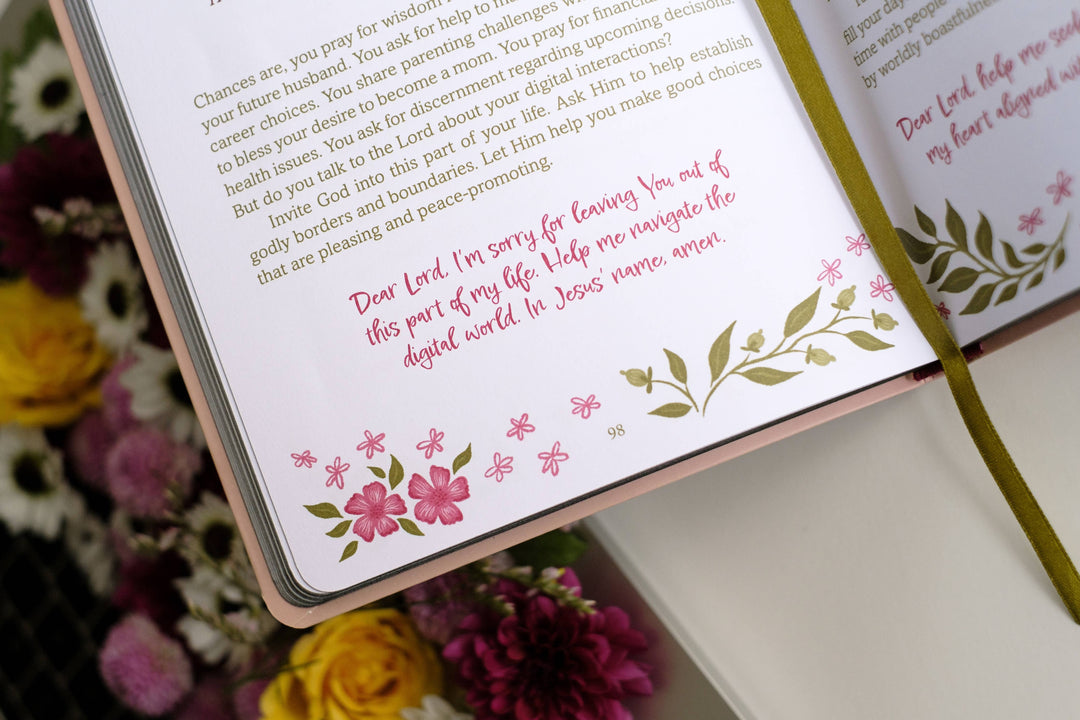 Chances are, you pray for wisdom
your future husband. You ask for help to
career choices. You share parenting challenges
to bless your desire to become a mom. You pray for financial
health issues. You ask for discernment regarding upcoming decisions.
But do you talk to the Lord about your digital interactions?
Invite God into this part of your life. Ask Him to help establish
godly borders and boundaries. Let Him help you make good choices
that are pleasing and peace-promoting.
Dear Lord, I'm sorry for leaving You out of
this part of my life. Help me navigate the
digital world. In Jesus' name, amen.
98
fill your day
time with people
by worldly boastfulness
Dear Lord, help me
my heart aligned